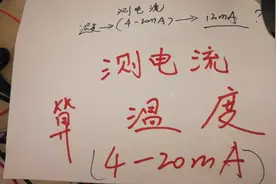 测电流
温度→(4-20mA)→12mA ?
测电流
算 温度
(4-20mA)